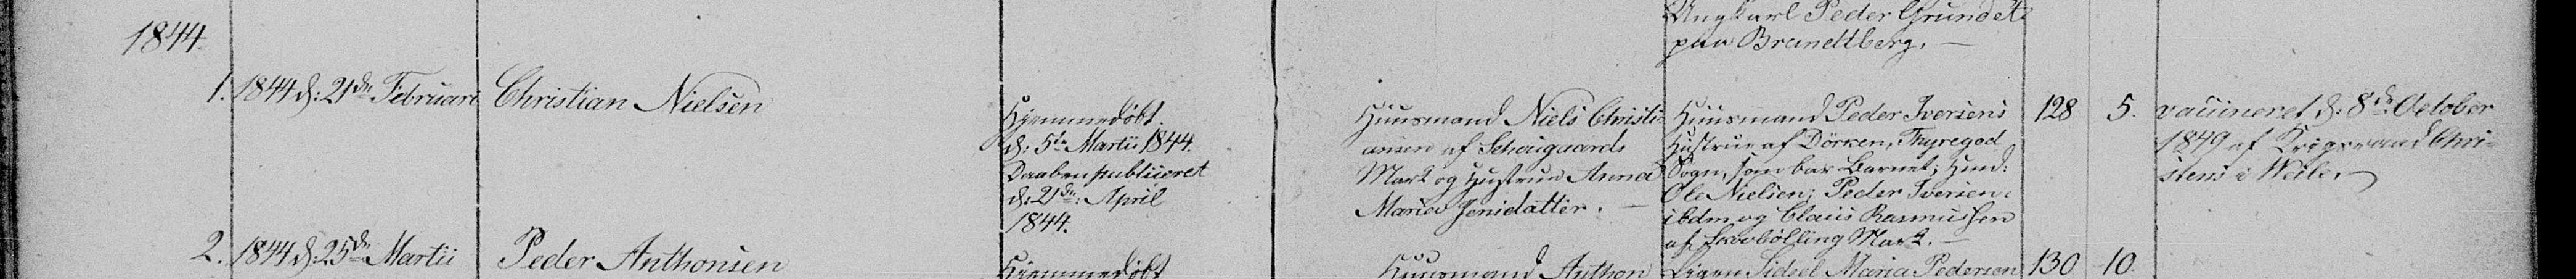 Ungkarl Peder Grundet
paa Brandtberg. —
1844.
1. 1844 d: 21de Februari
Christian Nielsen
Hjemmedöbt
d: 5te Martii 1844.
Daaben publiceret
d: 21de April
1844.
Huusmand Niels Christi-
ansen af Schougaards
Mark og Hustrue Anna
Maria Jensdatter. —
Huusmand Peder Iversens
Hustrue af Dörken, Thyregod
Sogn, som bar Barnet; Huusd:
Ole Nielsen; Peder Iversen
ibdm og Claus Rasmussen
af Skovbölling Mark. —
128
5.
vaccineret d: 8de October
1849 af Krigsraad Chri-
stens i Weile.
2. 1844 d: 25de Martii
Peder Anthonsen
Hjemmedöbt
Huusmand Anthon
Pigen Sidsel Maria Pedersen
130
10.